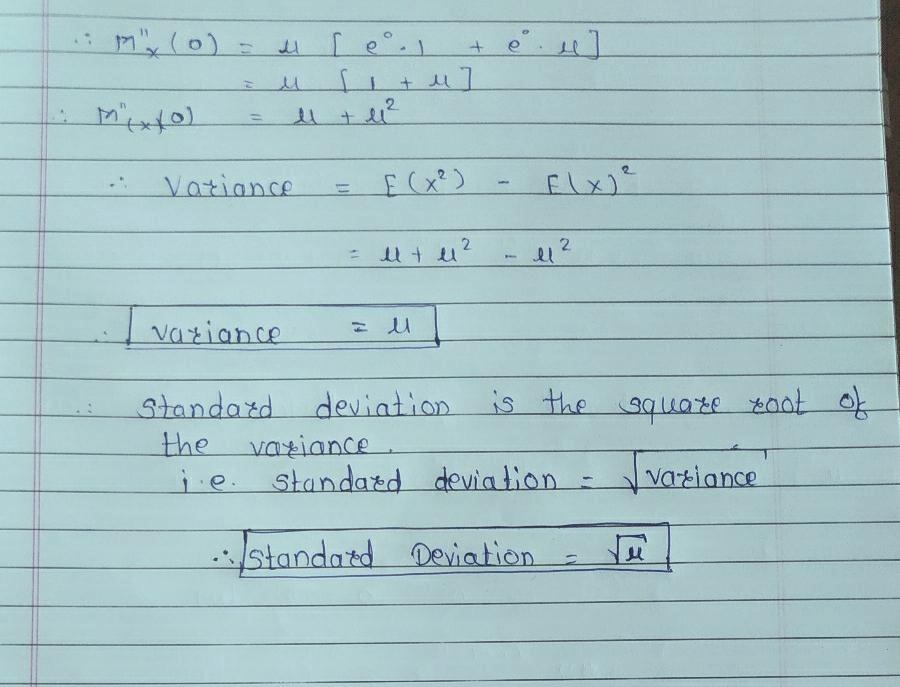 ∴ M"x(0) = μ [ e⁰·1 + e⁰·μ ]
= μ [ 1 + μ ]
∴ M"(x)(0) = μ + μ²
∴ Variance = E(x²) - E(x)²
= μ + μ² - μ²
∴ variance = μ
∴ standard deviation is the square root of
the variance.
i.e. standard deviation = √variance
∴ Standard Deviation = √μ